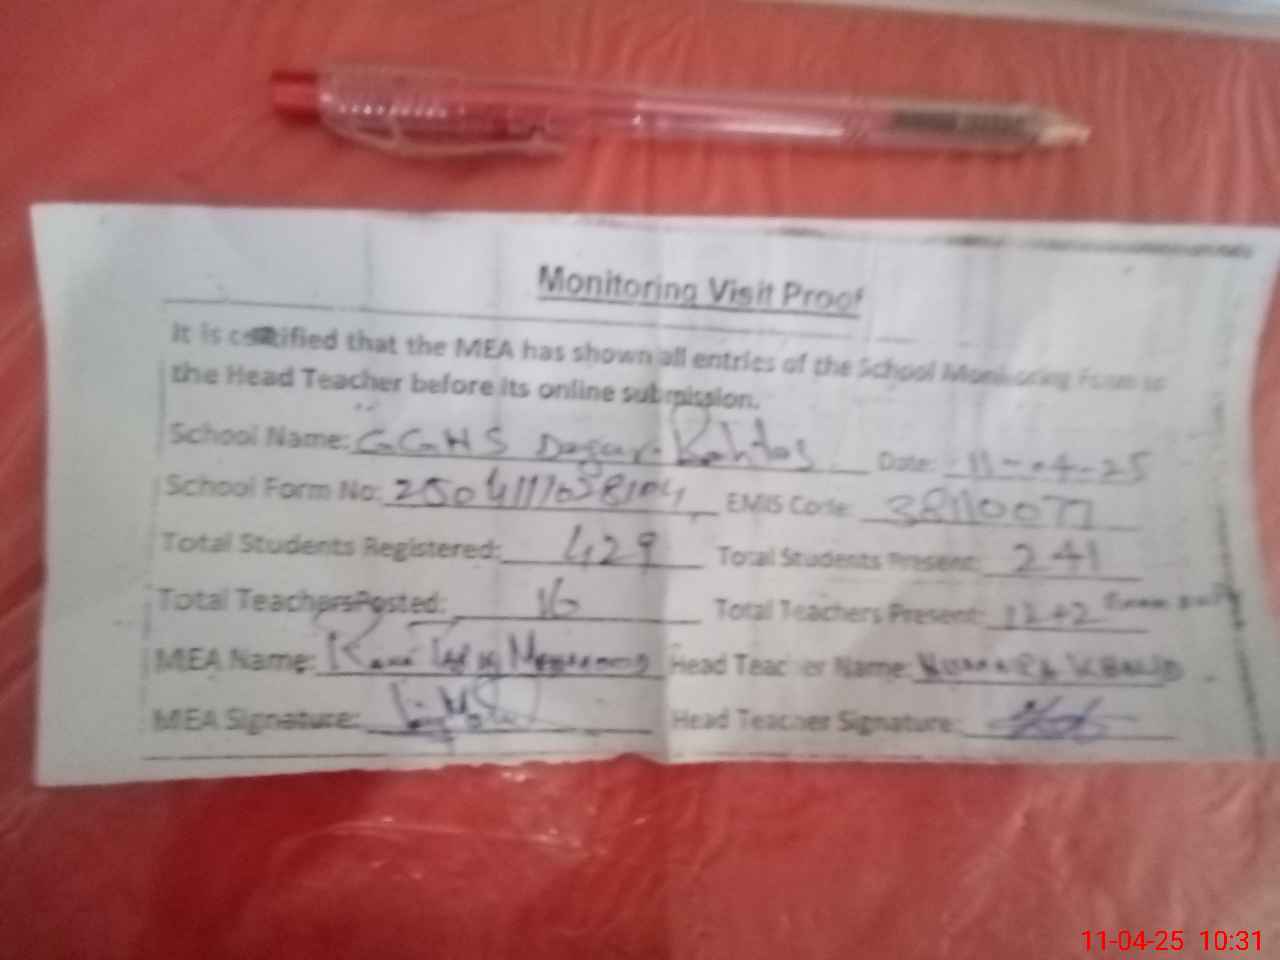 Monitoring Visit Proof
It is certified that the MEA has shown all entries of the School Monitoring Form to
the Head Teacher before its online submission.
School Name: GGHS Rohtas Date: 11-04-25
School Form No: 2504111758104 EMIS Code: 38110077
Total Students Registered: 429 Total Students Present: 241
Total TeachersPosted: 16 Total Teachers Present: 12+2
MEA Name: Head Teacher Name: KHALID
MEA Signature: Head Teacher Signature:
11-04-25 10:31